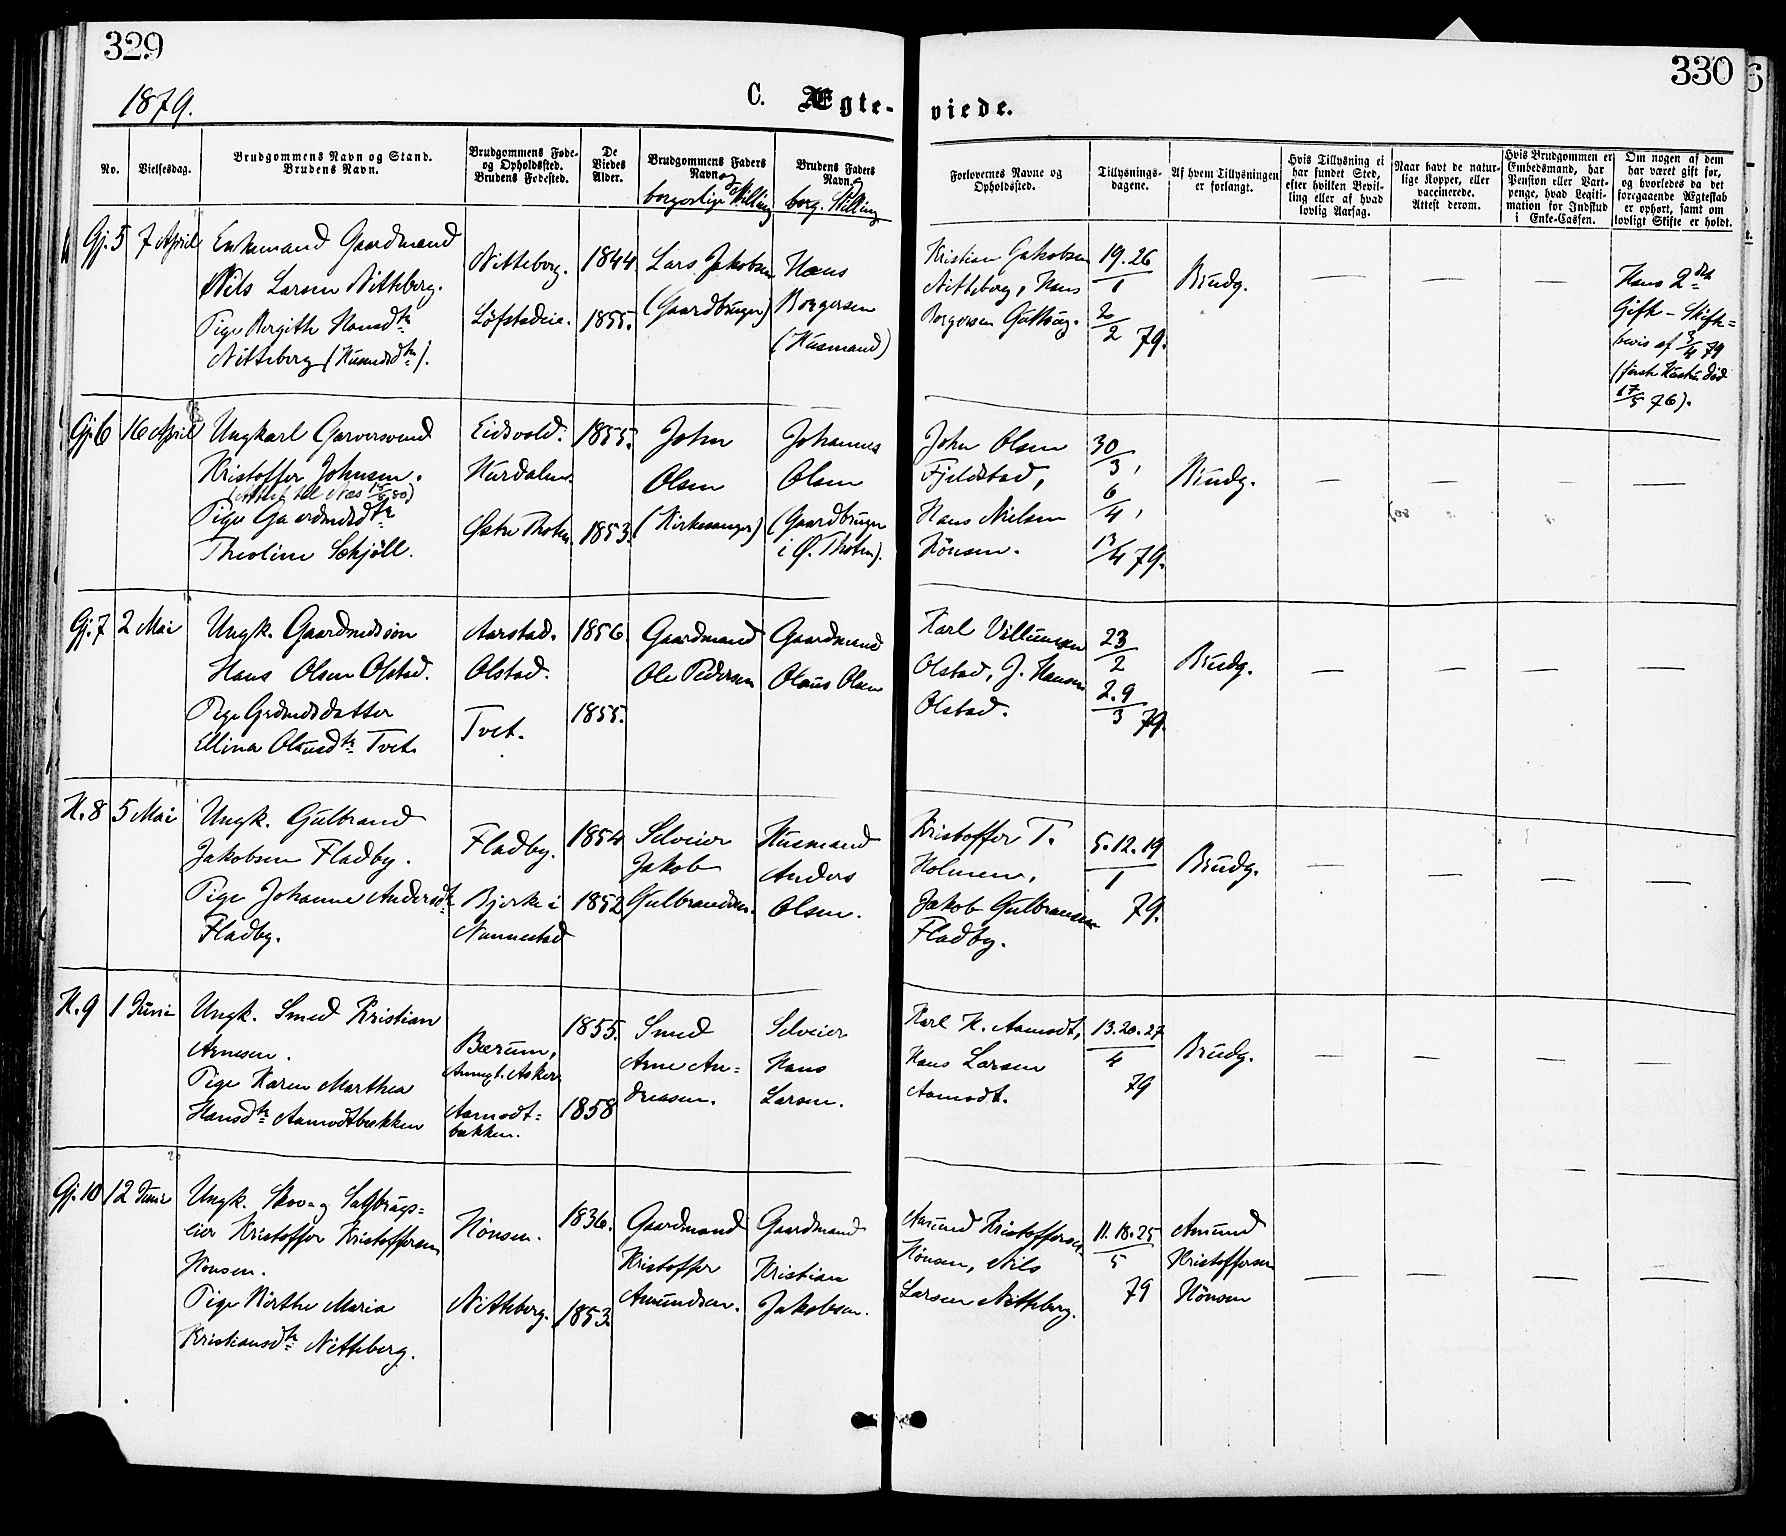 329
330
1879.
C. Ægte-
viede.
No.
Vielsesdag.
Brudgommens Navn og Stand.
Brudens Navn.
Brudgommens Føde-
og Opholdssted.
Brudens Fødested.
De
Viedes
Alder.
Brudgommens Faders
Navn og
borgerlige Stilling
Brudens Faders
Navn og
borg. Stilling
Forlovernes Navne og
Opholdssted.
Tillysnings-
dagene.
Af hvem Tillysningen
er forlangt.
Hvis Tillysning ei
har fundet Sted,
efter hvilken Bevil-
ling eller af hvad
lovlig Aarsag.
Naar havt de natur-
lige Kopper, eller
vaccinerede.
Attest derom.
Hvis Brudgommen er
Embedsmand, har
Pension eller Vart-
penge, hvad Legiti-
mation for Indskud
i Enke-Cassen.
Om nogen af dem
har været gift før,
og hvorledes da det
foregaaende Ægteskab
er ophørt, samt om
lovligt Skifte er holdt.
Gj. 5
7 April
Enkemand Gaardmand
Nils Larsen Nitteberg.
Pige Bergithe Hansdtr
Nitteberg (Husmdsdtr).
Nitteberg.
Løfstadeie.
1844
1855.
Lars Jakobsen
(Gaardbruger)
Hans
Borgersen
(Husmand)
Kristian Jakobsen
Nitteberg, Hans
Borgersen
19. 26
1
2
2 79.
Brudg.
Hans 2det
Gifte - Skifte-
bevis af 3/4 79
(første Hustru død
17/5 76).
Gj. 6
16 April
Ungkarl Garversvend
Kristoffer Johnsen.
Pige Gaardmdsdtr
Theoline Schjöll.
Eidsvold.
Hurdalen.
Østre Thoten.
1855.
1853.
John
Olsen
(Kirkesanger)
Johannes
Olsen
(Gaardbruger
i Ø. Thoten).
John Olsen
Fjeldstad,
Hans Nielsen
Hönsen.
30
3,
6
4,
13
4 79.
Brudg.
Gj. 7
2 Mai
Ungk. Gaardmdssøn
Hans Olsen Olstad.
Pige Grdmdsdatter
Elina Olausdtr Tvet.
Aarstad.
Olstad.
Tvet.
1856.
1855.
Gaardmand
Ole Pedersen
Gaardmand
Olaus Olsen
Karl Villumsen
Olstad, J. Hansen
Olstad.
23
2
2. 9
3 79.
Brudg.
H. 8
5 Mai
Ungk. Gulbrand
Jakobsen Fladby.
Pige Johanne Andersdtr
Fladby.
Fladby.
Bjerke i
Nannestad
1854
1852
Selveier
Jakob
Gulbrandsen.
Husmand
Anders
Olsen.
Kristoffer T.
Holmen,
Jakob Gulbransen
Fladby.
5. 12. 19
1
79.
Brudg.
H. 9
1 Juni
Ungk. Smed Kristian
Arnesen.
Pige Karen Marthea
Hansdtr Aamodtbækken
Bærum,
Annegt. Asker
Aamodt-
bækken.
1855.
1858
Smed
Arne An-
dreasen.
Selveier
Hans
Larsen.
Karl K. Aamodt,
Hans Larsen
Aamodt.
13. 20. 27
4
79
Brudg.
Gj. 10
12 Juni
Ungk. Skov og Sagbrugs-
eier Kristoffer Kristoffersen
Hönsen.
Pige Karthe Maria
Kristiansdtr Nitteberg.
Hönsen.
Nitteberg.
1836.
1853.
Gaardmand
Kristoffer
Amundsen.
Gaardmand
Kristian
Jakobsen.
Amund Kristoffersen
Hönsen, Nils
Larsen Nitteberg.
11. 18. 25
5
79
Amund
Kristoffersen
Hönsen